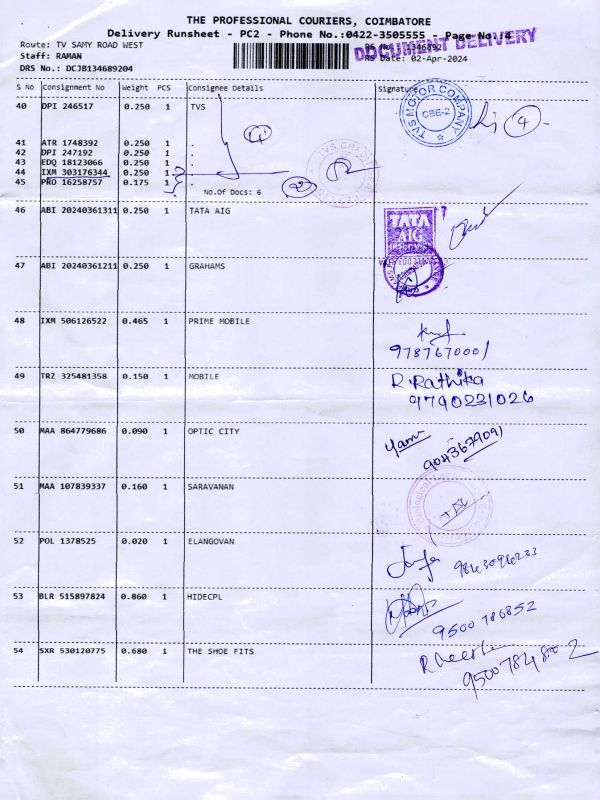 THE PROFESSIONAL COURIERS, COIMBATORE
Delivery Runsheet - PC2 - Phone No.:0422-3505555 - Page No.:4
DOCUMENT DELIVERY
Route: TV SAMY ROAD WEST
Staff: RAMAN
RS Date: 02-Apr-2024
DRS No.: DCJB134689204
S No Consignment No Weight PCS Consignee Details Signature
40 DPI 246517 0.250 1 TVS
TVS MOTOR COMPANY CBE-2
4
4
41 ATR 1748392 0.250 1 .
42 DPI 247192 0.250 1 .
43 EDQ 18123066 0.250 1 .
44 IXM 303176344 0.250 1 .
45 PRO 16258757 0.175 1 .
No.Of Docs: 6
2
46 ABI 20240361311 0.250 1 TATA AIG
TATA AIG
47 ABI 20240361211 0.250 1 GRAHAMS
48 IXM 506126522 0.465 1 PRIME MOBILE
9787670001
49 TRZ 325481358 0.150 1 MOBILE
R. Rathika
9790231026
50 MAA 864779686 0.090 1 OPTIC CITY
9043679091
51 MAA 107839337 0.160 1 SARAVANAN
52 POL 1378525 0.020 1 ELANGOVAN
53 BLR 515897824 0.860 1 HIDECPL
9500786852
54 SXR 530120775 0.680 1 THE SHOE FITS